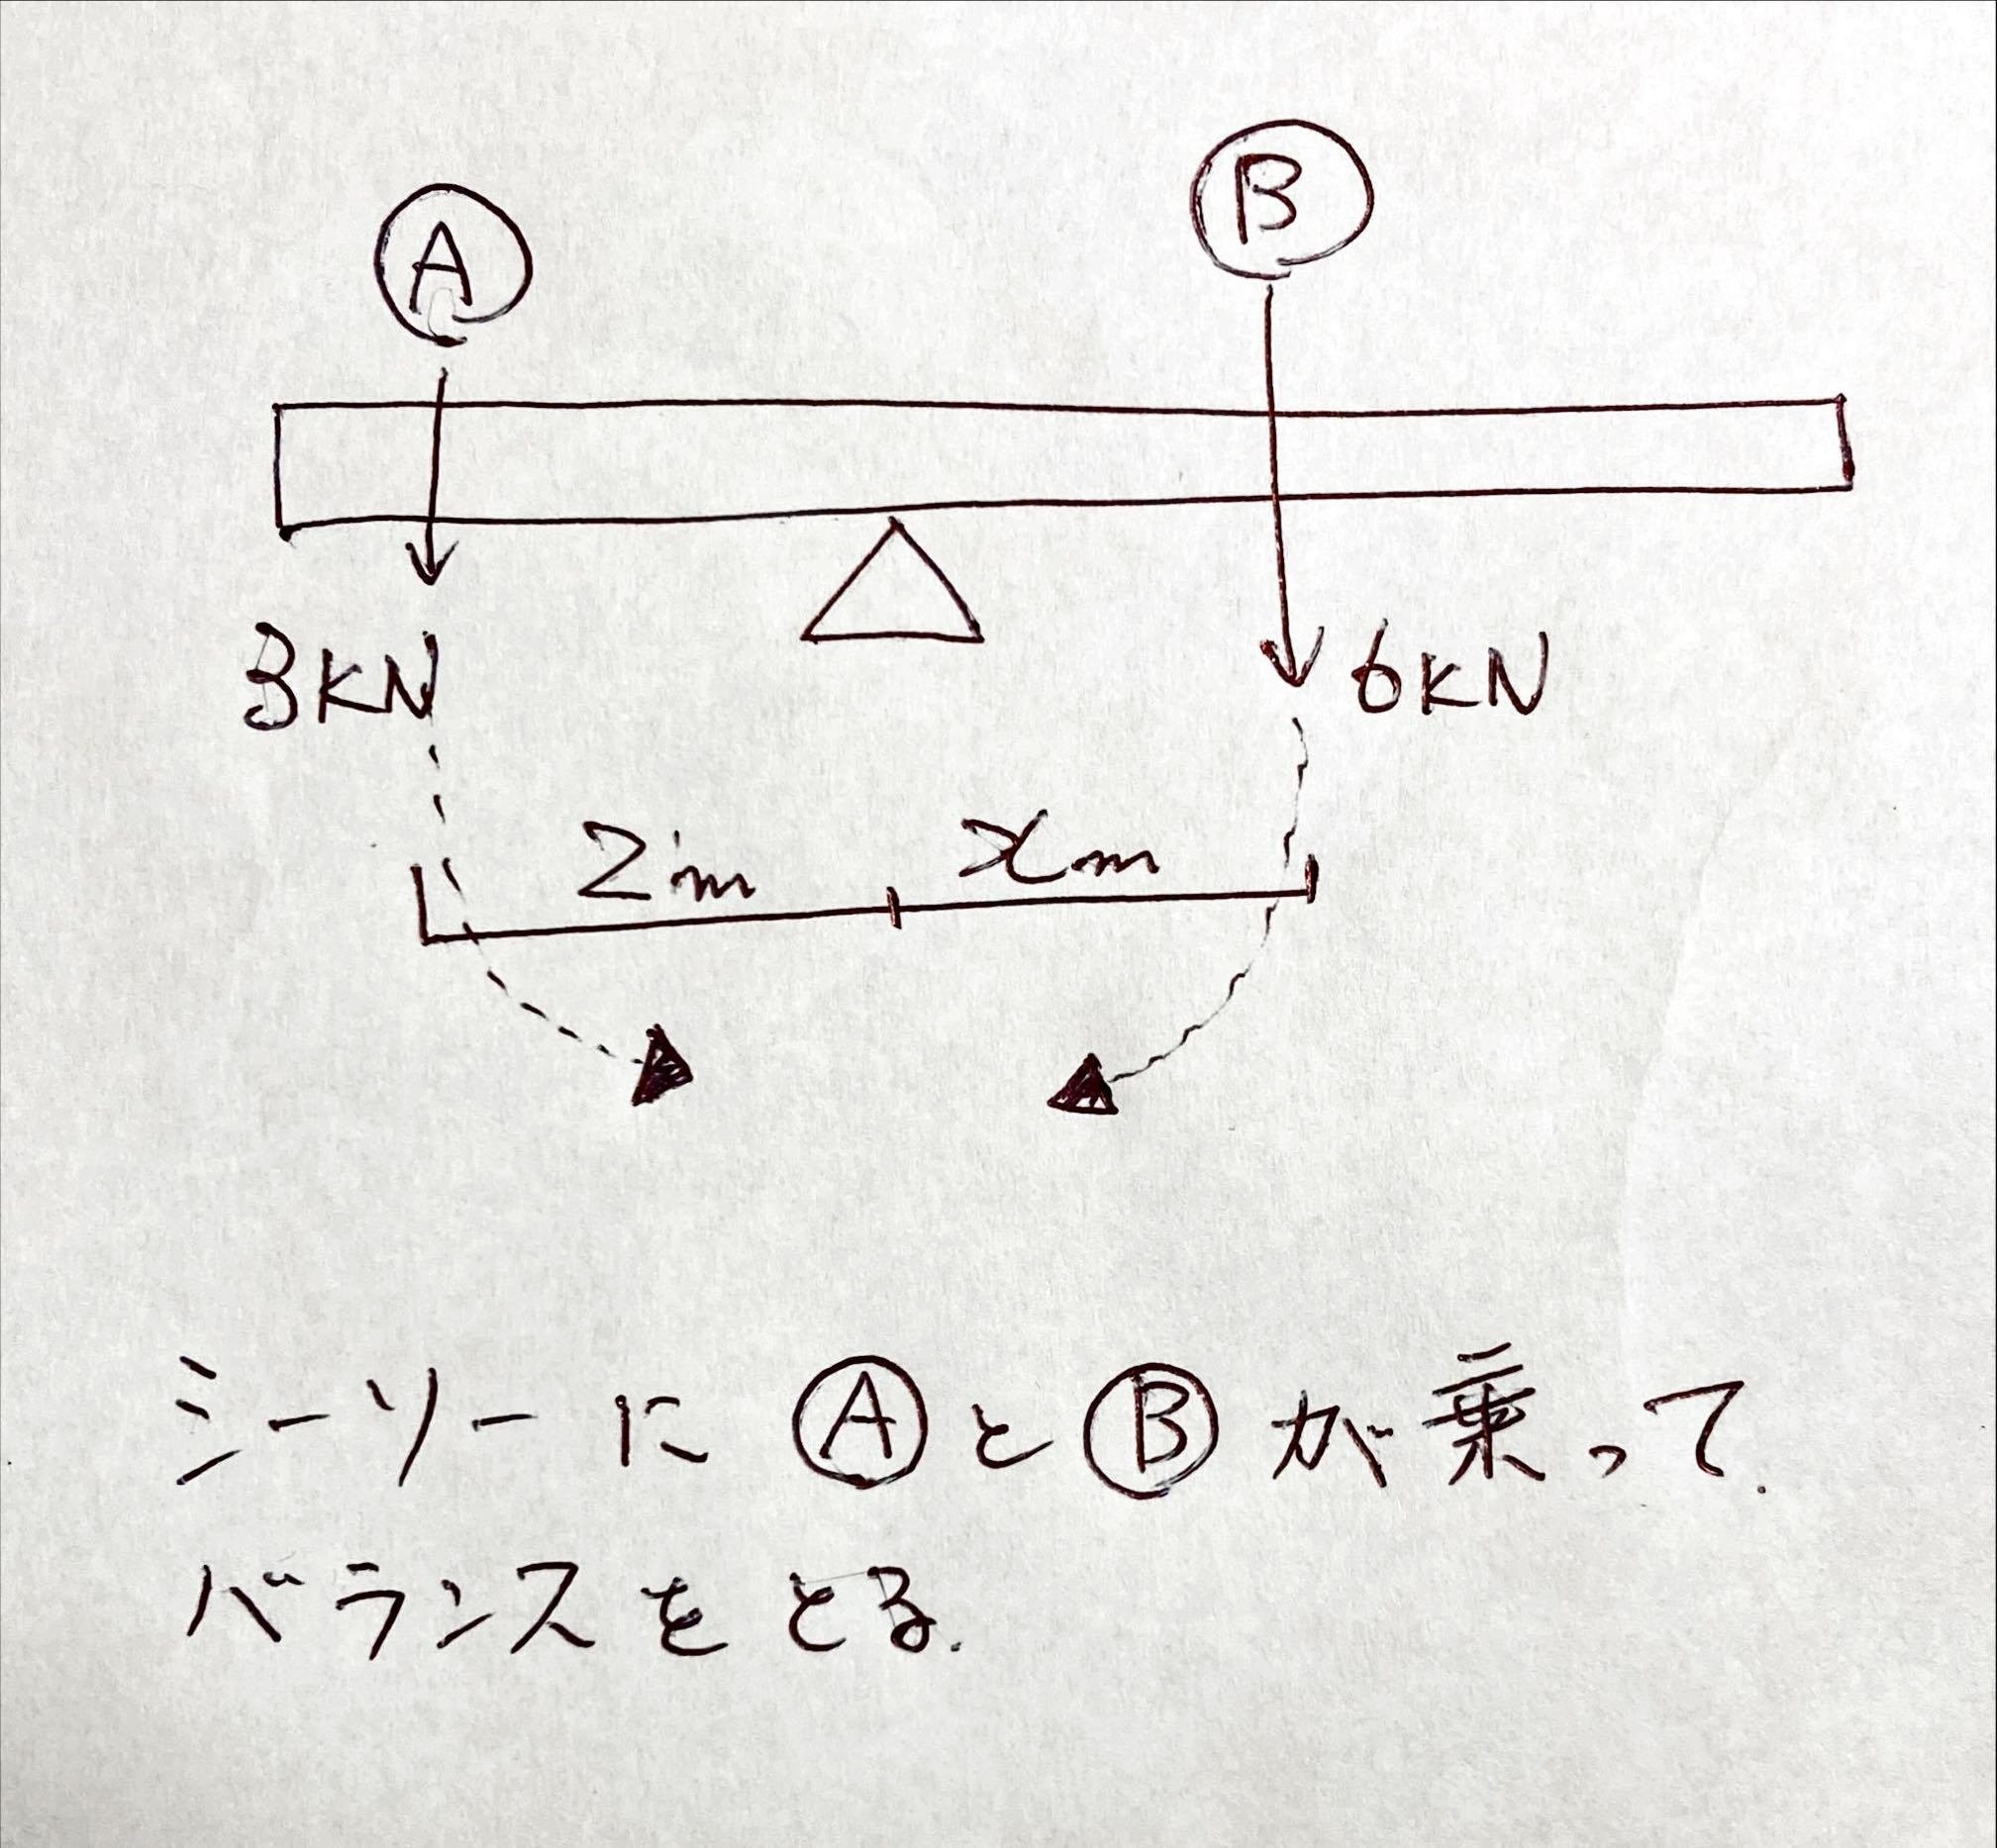 Ⓐ
Ⓑ
3KN
6KN
2m
xm
シーソーに Ⓐ と Ⓑ が乗って.
バランスをとる.